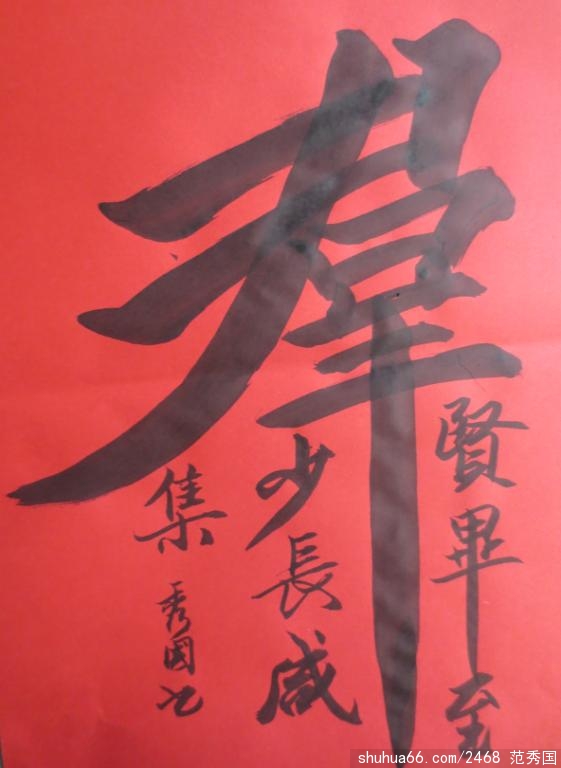 羣
賢畢至
少長咸
集
秀國书
shuhua66.com/2468 范秀国